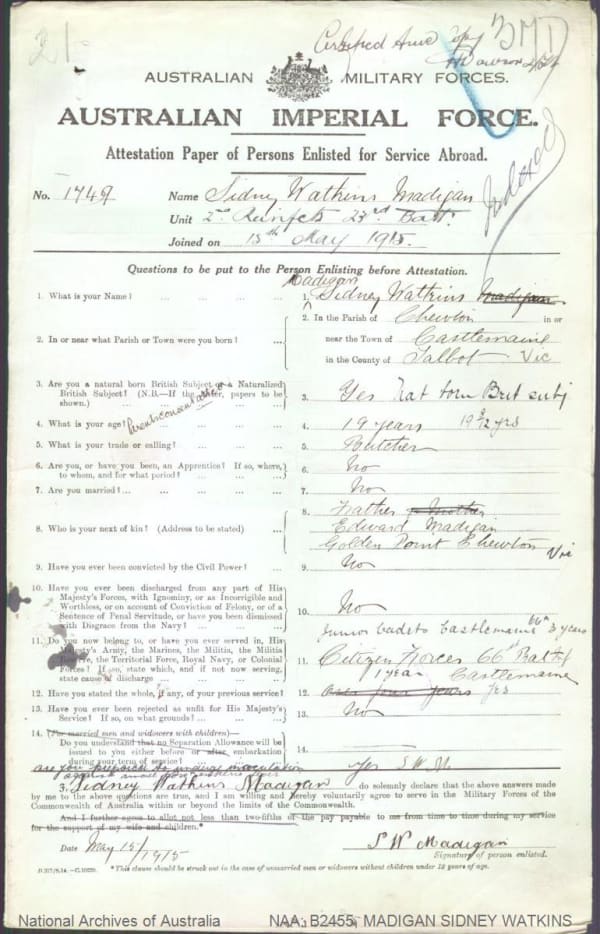 21-
Certified True Copy
3MD
AUSTRALIAN MILITARY FORCES.
AUSTRALIAN IMPERIAL FORCE.
Attestation Paper of Persons Enlisted for Service Abroad.
Indexed
No. 1749 Name Sidney Watkins Madigan
Unit 2nd Reinfcts 23rd Batt.
Joined on 15th May 1915.
Questions to be put to the Person Enlisting before Attestation.
Madigan
1. What is your Name? ... ... ... 1. Sidney Watkins Madigan
2. In or near what Parish or Town were you born? ... 2. In the Parish of Chewton in or
near the Town of Castlemaine
in the County of Talbot Vic
3. Are you a natural born British Subject or a Naturalized
British Subject? (N.B.—If the latter, papers to be
shown.) ... ... ... ... 3. Yes Nat born Brit subj
Parents consent attached
4. What is your age? ... ... ... 4. 19 years 19 8/12 yrs
5. What is your trade or calling? ... ... ... 5. Butcher
6. Are you, or have you been, an Apprentice? If so, where,
to whom, and for what period? ... ... ... 6. No
7. Are you married?... ... ... ... 7. No
8. Who is your next of kin? (Address to be stated) ... 8. Father & Mother
Edward Madigan
Golden Point Chewton Vic
9. Have you ever been convicted by the Civil Power? ... 9. No
10. Have you ever been discharged from any part of His
Majesty's Forces, with Ignominy, or as Incorrigible and
Worthless, or on account of Conviction of Felony, or of a
Sentence of Penal Servitude, or have you been dismissed
with Disgrace from the Navy? ... ... ... 10. No
Junior Cadets Castlemaine 66th 3 years
11. Do you now belong to, or have you ever served in, His
Majesty's Army, the Marines, the Militia, the Militia
Reserve, the Territorial Force, Royal Navy, or Colonial
Forces? If so, state which, and if not now serving,
state cause of discharge ... ... 11 Citizen Forces 66th Batt
1 year Castlemaine
12. Have you stated the whole, if any, of your previous service? 12. Yes
13. Have you ever been rejected as unfit for His Majesty's
Service? If so, on what grounds? ... ... ... 13. No
14. (For married men and widowers with children—
Do you understand that no Separation Allowance will be
issued to you either before or after embarkation
during your term of service? ... ... ... 14.
are you prepared to undergo inoculation
against small pox & enteric fever Yes S W M
I, Sidney Watkins Madigan do solemnly declare that the above answers made
by me to the above questions are true, and I am willing and hereby voluntarily agree to serve in the Military Forces of the
Commonwealth of Australia within or beyond the limits of the Commonwealth.
And I further agree to allot not less than two-fifths of the pay payable to me from time to time during my service
for the support of my wife and children.*
Date May 15/1915
S W Madigan
Signature of person enlisted.
*This clause should be struck out in the case of unmarried men or widowers without children under 18 years of age.
National Archives of Australia NAA: B2455, MADIGAN SIDNEY WATKINS